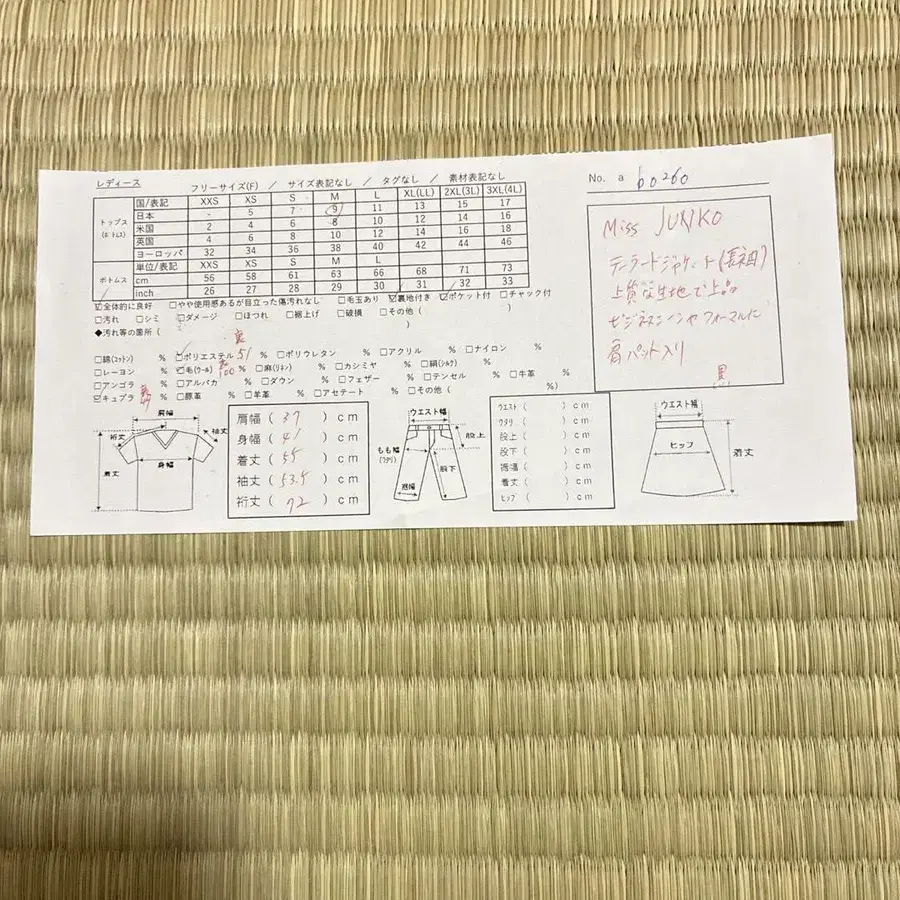 レディース
フリーサイズ(F) / サイズ表記なし / タグなし / 素材表記なし
国/表記 XXS XS S M L XL(LL) 2XL(3L) 3XL(4L)
トップス
日本 - 5 7 9 11 13 15 17
米国 2 4 6 8 10 12 14 16
英国 4 6 8 10 12 14 16 18
ヨーロッパ 32 34 36 38 40 42 44 46
ボトムス
単位/表記 XXS XS S M L
cm 56 58 61 63 66 68 71 73
inch 26 27 28 29 30 31 32 33
☑全体的に良好 □やや使用感あるが目立った傷汚れなし □毛玉あり ☑裏地付き ☑ポケット付 □チャック付
□汚れ □シミ □ダメージ □ほつれ □裾上げ □破損 □その他 ( )
◆汚れ等の箇所 ( )
裏
□綿(コットン) % ☑ポリエステル 51 % □ポリウレタン % □アクリル % □ナイロン %
□レーヨン % ☑毛(ウール) 100 % □麻(リネン) % □カシミヤ % □絹(シルク) %
□アンゴラ % □アルパカ % □ダウン % □フェザー % □テンセル % □牛革 %
☑キュプラ % □豚革 % □羊革 % □アセテート % □その他 ( %)
肩幅
裄丈
袖丈
着丈
身幅
肩幅 ( 37 ) cm
身幅 ( 41 ) cm
着丈 ( 55 ) cm
袖丈 ( 53.5 ) cm
裄丈 ( 72 ) cm
ウエスト幅
股上
もも幅
(ワタリ)
股下
裾幅
ウエスト ( ) cm
ワタリ ( ) cm
股上 ( ) cm
股下 ( ) cm
裾幅 ( ) cm
着丈 ( ) cm
ヒップ ( ) cm
ウエスト幅
ヒップ
着丈
No. a 60260
Miss JUNKO
テーラードジャケット (長袖)
上質な生地で上品
ビジネスシーンやフォーマルに
肩パット入り